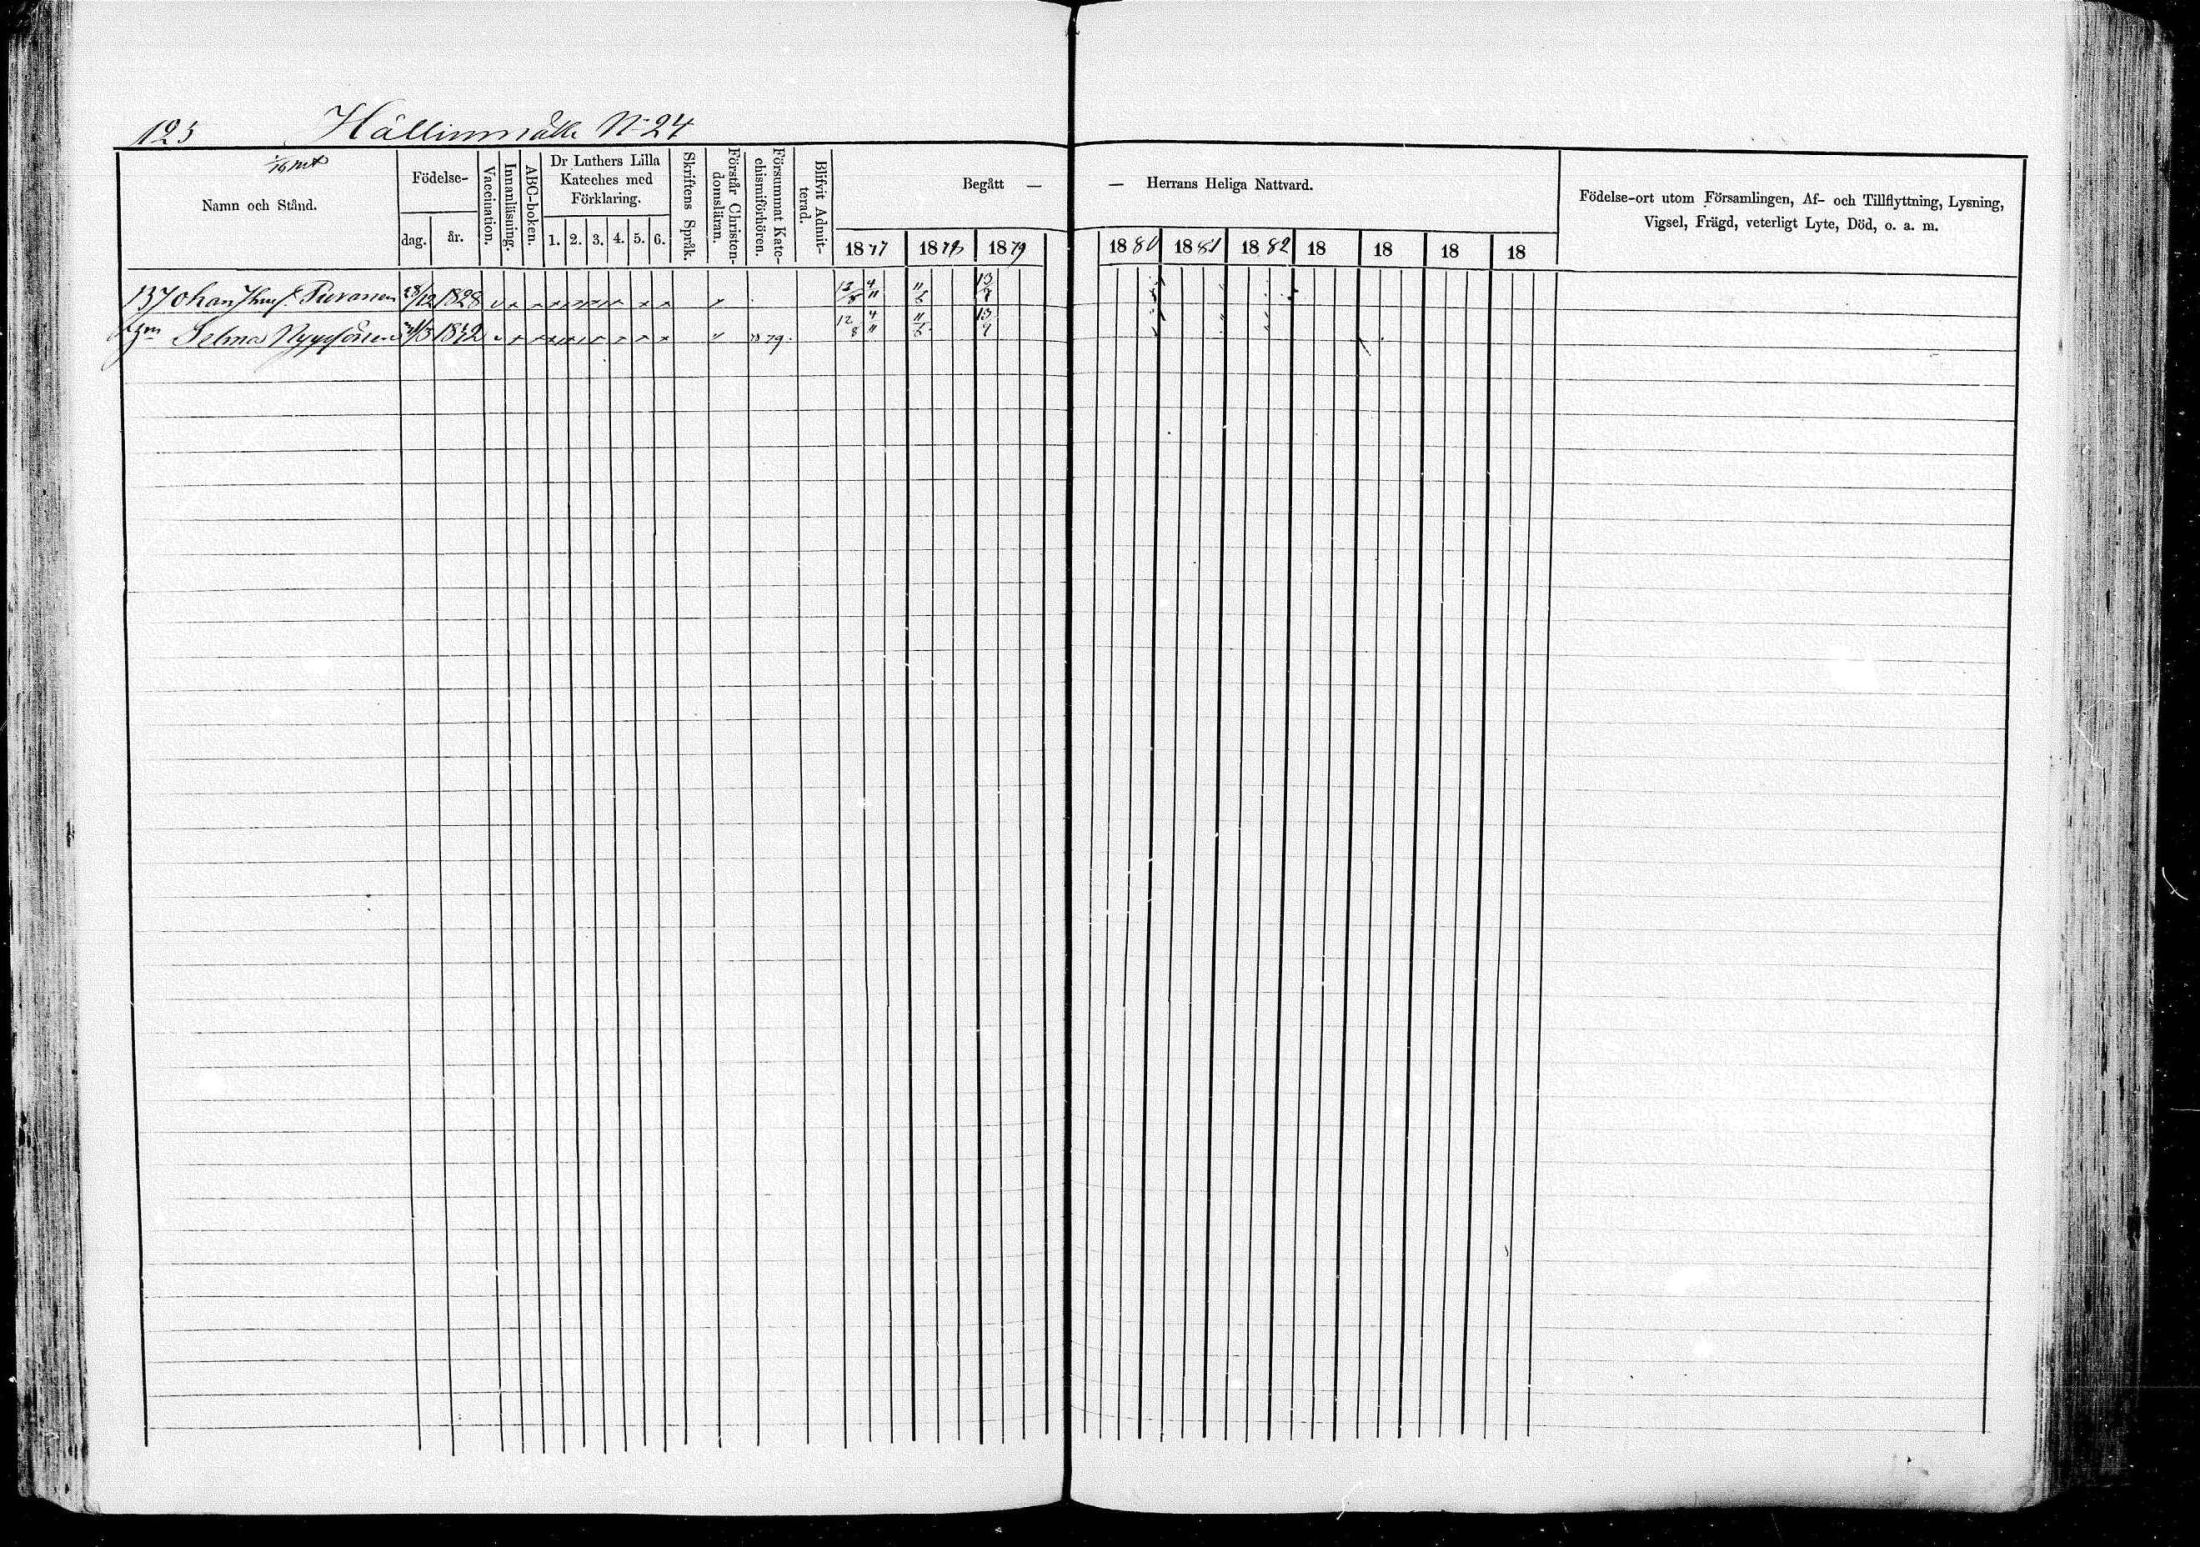 123 Hällinmäke N:24
1/16 mt
Namn och Stånd.
Födelse-
dag. år.
Vaccination.
Innanläsning.
ABC-boken.
Dr Luthers Lilla
Kateches med
Förklaring.
1. 2. 3. 4. 5. 6.
Skriftens Språk.
Förstår Christen-
domsläran.
Försummat Kate-
chismiförhören.
Blifvit Admit-
terad.
Begått — — Herrans Heliga Nattvard.
1877 1878 1879 1880 1881 1882 18 18 18 18
Födelse-ort utom Församlingen, Af- och Tillflyttning, Lysning,
Vigsel, Frägd, veterligt Lyte, Död, o. a. m.
Johan Puranen 28/12 1828 12/8 4/11 11/6 13/9
Selma 12/8 4/11 11/6 13/9
79.